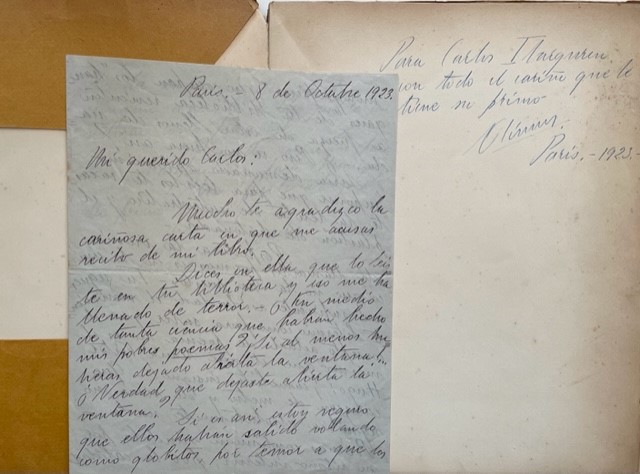 París. - 8 de Octubre 1923.
Mi querido Carlos:
Mucho te agradezco la
cariñosa carta en que me acusas
recibo de mi libro.
Dices en ella que lo leis
te en tu biblioteca y eso me ha
llenado de terror. - En medio
de tanta ciencia que habrán hecho
mis pobres poemas? Si al menos hu
bieras dejado abierta la ventana
Verdad, que dejaste abierta la
ventana?
Si es así, estoy seguro
que ellos habrán salido volando
como globitos por temor a que los
Para Carlos Ibarguren
con todo el cariño que le
tiene su primo
París. - 1923. -